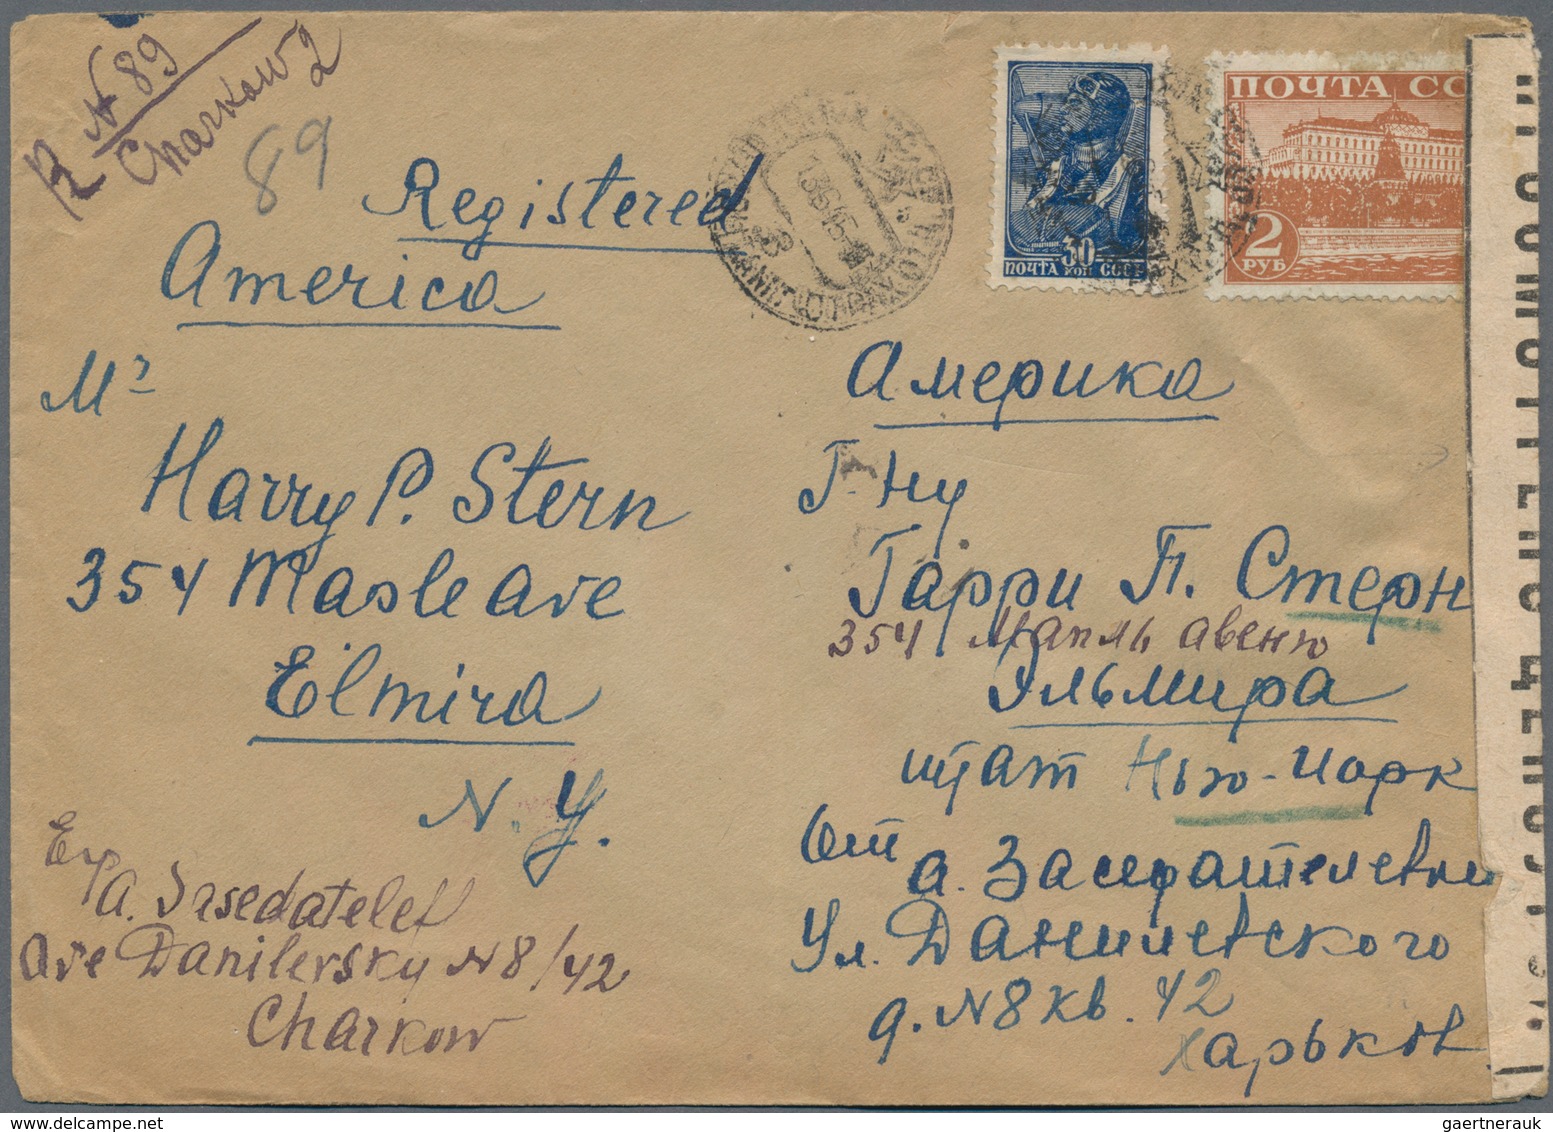 R N 89
Charkow 2
89
Registered
America
Mr
Harry P. Stern
354 Masle Ave
Elmira
N. Y.
Exp
Ave Danilevsky N8/42
Charkow
30
ПОЧТА КОП СССР
ПОЧТА СС
2
РУБ
Америка
Г-ну
Гарри П. Стерн
354 Мапль авеню
Эльмира
штат Нью-Иорк
От
Ул. Данилевского
д. N8 кв. 42
Харьков
gaertnerauk